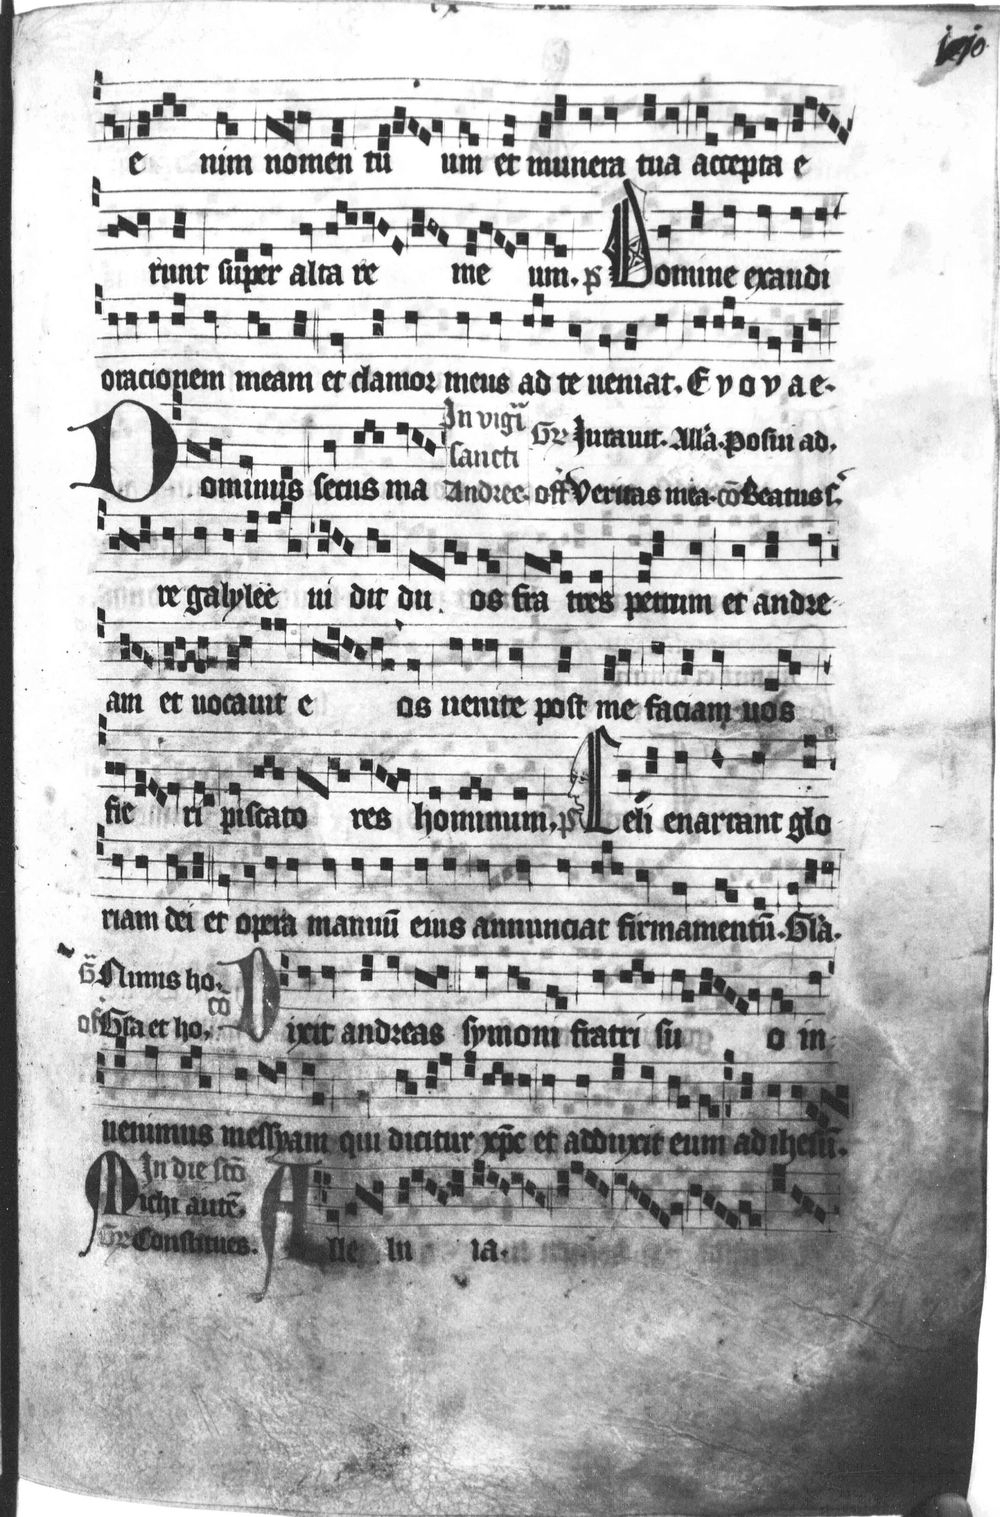 e nim nomen tu um et munera tua accepta e
runt super alta re me um. p̃s Domine exaudi
oracionem meam et clamor meus ad te ueniat. E v o v a e.
In vigl̃
sancti
Andree. Gr̃ Iurauit. Allã. Posui ad.
off̃ Veritas mea. cõ Beatus s̃.
Dominus secus ma
re galylee ui dit du os fra tres petrum et andre
am et uocauit e os uenite post me faciam uos
fie ri piscato res hominum, p̃s Celi enarrant glo
riam dei et opera manuũ eius annunciat firmamentũ. Glã.
Gr̃ Nimis ho.
cõ
of Glã et ho.
Dixit andreas symoni fratri su o in
uenimus messyam qui dicitur xp̃c et adduxit eum ad ihesũ.
In die scõ
Michi autẽ.
Gr̃ Constitues.
Alle lu ia.